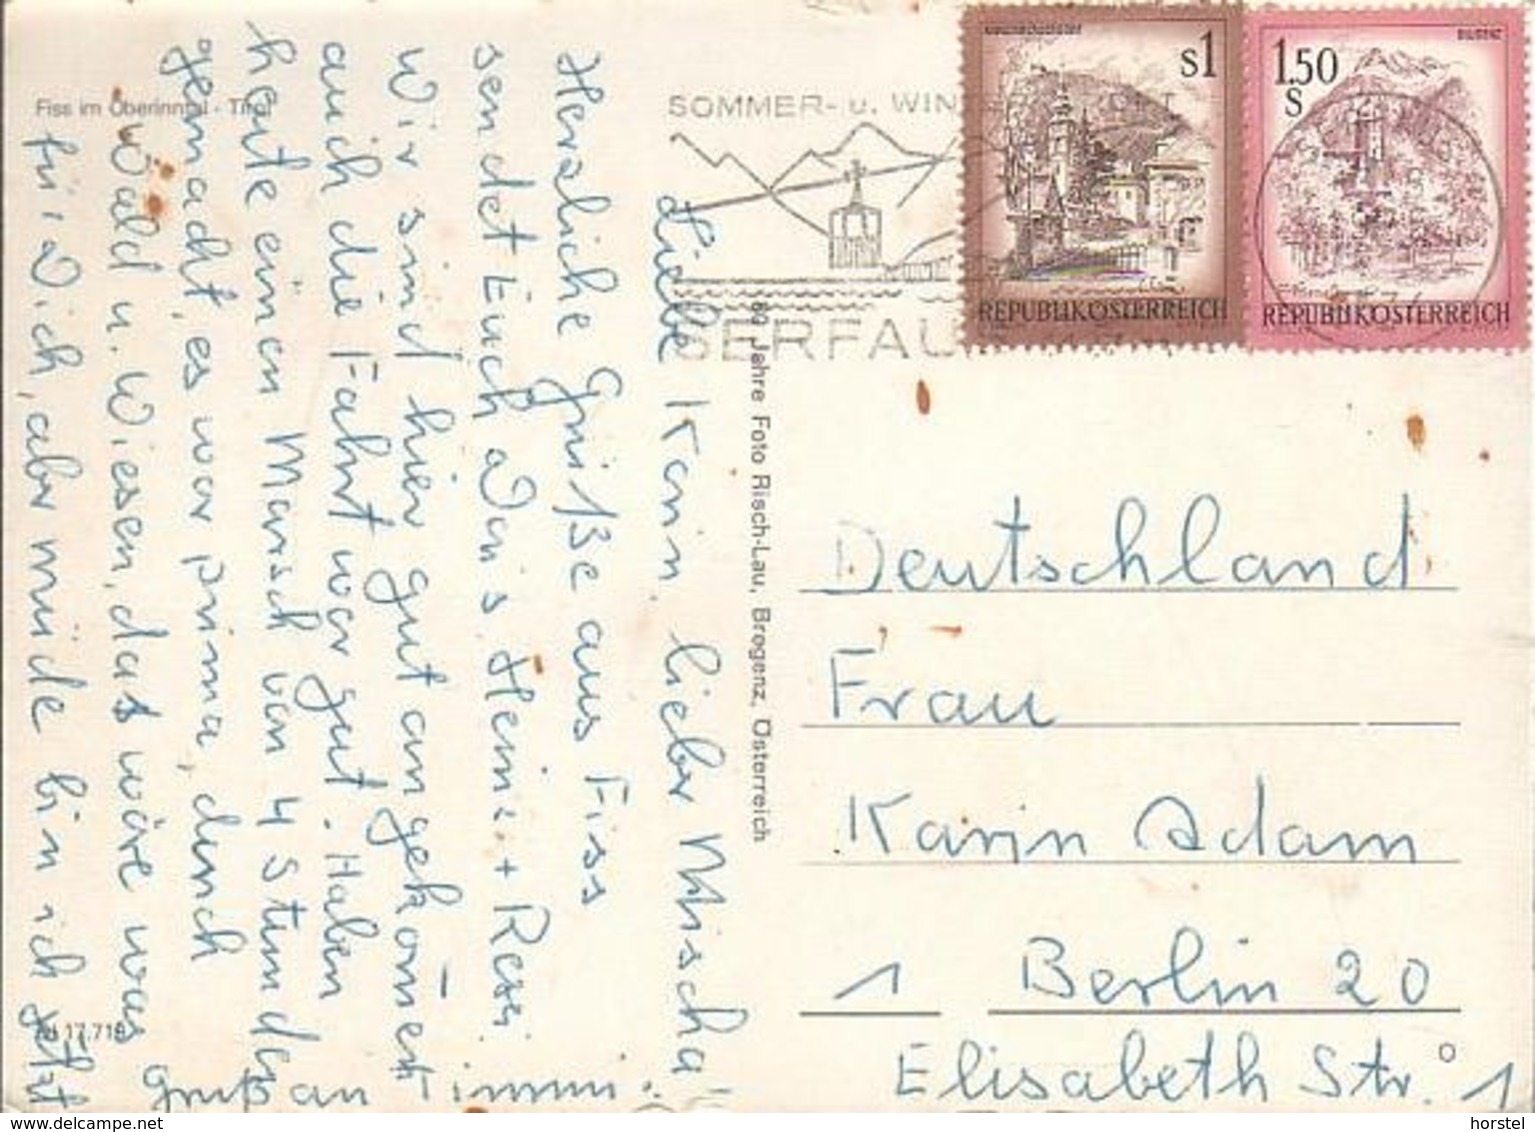 Fiss im Oberinntal - Tirol
SOMMER- u. WIN
SERFAU
s1
REPUBLIK ÖSTERREICH
1.50
S
BLUDENZ
REPUBLIK ÖSTERREICH
60 Jahre Foto Risch-Lau, Bregenz, Österreich
Liebe Karin, lieber Mischa!
Herzliche Grüße aus Fiss
sendet Euch Heinz + Resi.
Wir sind hier gut angekommen
auch die Fahrt war gut. Haben
heute einen Marsch von 4 Stunden
gemacht, es war prima, durch
Wald u. Wiesen, das wäre was
für Dich, aber müde bin ich jetzt
Gruß an
Deutschland
Frau
Karin Adam
1 Berlin 20
Elisabeth Str. 1
17.719
delcampe.net
horstel